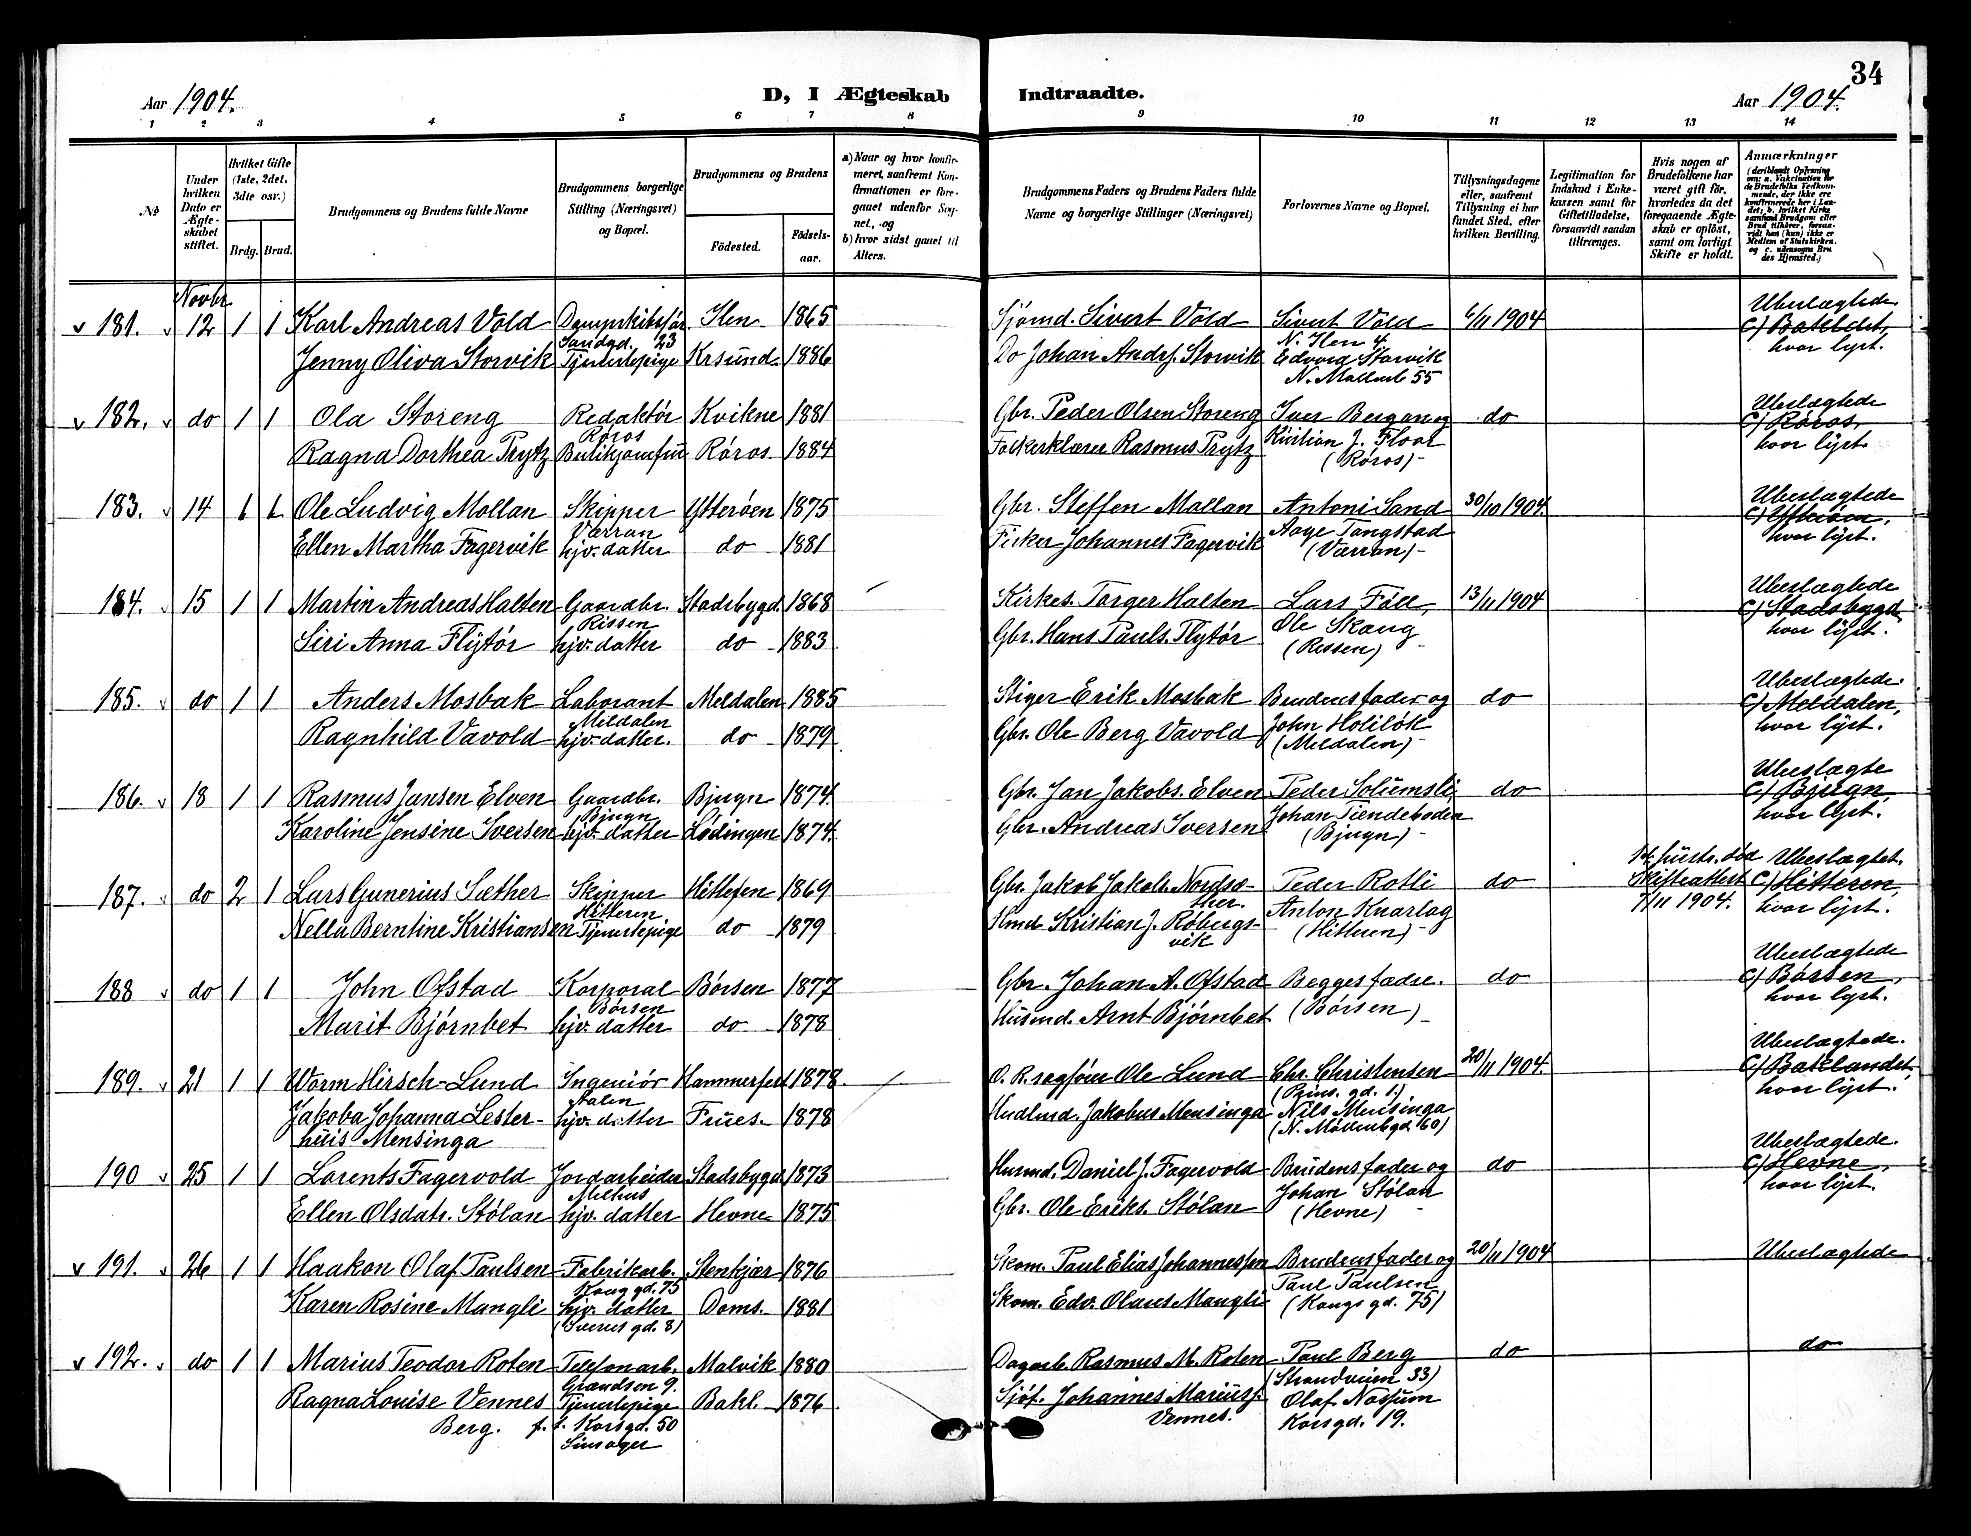 34
Aar 1904. D, I Ægteskab Indtraadte. Aar 1904.
1 2 3 4 5 6 7 8 9 10 11 12 13 14
No
Under hvilken Dato er Ægteskabet stiftet.
Hvilket Gifte (1ste, 2det, 3dte osv.)
Brdg. Brud.
Brudgommens og Brudens fulde Navne
Brudgommens borgerlige Stilling (Næringsvei) og Bopæl.
Brudgommens og Brudens
Fødested. Fødselsaar.
a) Naar og hvor konfirmeret, saafremt Konfirmationen er foregaaet udenfor Sognet, og
b) hvor sidst gaaet til Alters.
Brudgommens Faders og Brudens Faders fulde Navne og borgerlige Stillinger (Næringsvei)
Forlovernes Navne og Bopæl.
Tillysningsdagene eller, saafremt Tillysning ei har fundet Sted, efter hvilken Bevilling.
Legitimation for Indskud i Enkekassen samt for Giftetilladelse, forsaavidt saadan tiltrænges.
Hvis nogen af Brudefolkene har været gift før, hvorledes da det foregaaende Ægteskab er opløst, samt om lovligt Skifte er holdt.
Anmærkninger (deriblandt Oplysning om: a. Vakcination for de Brudefolks Vedkommende, der ikke ere konfirmerede her i Landet; b. hvilket Kirkesamfund Brudgom eller Brud tilhører, forsaavidt han (hun) ikke er Medlem af Statskirken, og c. udensogns Brudes Hjemsted.)
Novbr
v 181. v 12 1 1 Karl Andreas Vold Dampskibsfør. Ilen 1865 Sjømd. Sivert Vold Sivert Vold 6/11 1904 Ubeslægtede
Sandgd. 23 N. Ilen 4 c/ Baklandet,
Jenny Oliva Storvik Tjenestepige Krsund 1886 Do Johan Andr. Storvik Edvard Storvik hvor lyst.
N. Møllenb 55
v 182. v do 1 1 Ola Storeng Redaktør Kvikne 1881 Gbr. Peder Olsen Storeng Iver Bergan og do Ubeslægtede
Røros c/ Røros,
Ragna Dorthea Prytz Butikjomfru Røros 1884 Rasmus Prytz Kristian J. Floor hvor lyst.
(Røros)
183. v 14 1 1 Ole Ludvig Mollan Skipper Ytterøen 1875 Gbr. Steffen Mollan Antoni Sand 30/10 1904. Ubeslægtede
Værran c/ Ytterøen,
Ellen Martha Fagervik hjv. datter do 1881 Fisker Johannes Fagervik Aage Tangstad hvor lyst.
(Værran)
184. v 15 1 1 Martin Andreas Halten Gaardbr. Stadsbygd. 1868 Kirkes. Torger Halten Lars Føll, 13/11 1904 Ubeslægtede
Rissen c/ Stadsbygd
Siri Anna Flytør hjv. datter do 1883 Gbr. Hans Pauls. Flytør Ole Skaug hvor lyst.
(Rissen)
185. v do 1 1 Anders Mosbak Laborant Meldalen 1885 Stiger Erik Mosbak Brudens fader og do Ubeslægtede
Meldalen c/ Meldalen,
Ragnhild Vavold hjv. datter. do 1879 Gbr. Ole Berg Vavold John Holiløk hvor lyst.
(Meldalen)
186. v 18 1 1 Rasmus Jansen Elven Gaardbr. Bjugn 1874 Gbr. Jan Jakobs. Elven Peder Solumsli, do Ubeslægte
Bjugn c/ Bjugn,
Karoline Jensine Iversen hjv. datter Lødingen 1874. Gbr. Andreas Iversen Johan Tiendeboden hvor lyst.
(Bjugn)
187. v do 2 1 Lars Gunerius Sæther Skipper Hitteren 1869 Gbr. Jakob Jakobs. Nordsæther. Peder Rotli do 1st. hustr. død Skifteattest 7/11 1904. Ubeslægtet.
Hitteren c/ Hitteren,
Nella Berntine Kristiansen Tjenestepige do 1879 Hmd. Kristian J. Røbergsvik Anton Knarlag hvor lyst.
(Hitteren)
188 v do 1 1 John Ofstad Korporal Børsen 1877 Gbr. Johan A. Ofstad Begges fædre. do Ubeslægtede
Børsen c/ Børsen,
Marit Bjørnbet hjv. datter do 1878 Husmd. Arnt Bjørnbet (Børsen) hvor lyst.
189. v 21 1 1 Worm Hirsch-Lund Ingeniør Hammerfest 1878. O. R. sagfører Ole Lund Chr. Christensen 20/11 1904. Ubeslægtede.
(Prins. gd. 1.) c/ Baklandet,
Jakoba Johanna Lesterhuis Mensinga hjv. datter Frues. 1878 Jakobus Mensinga Nils Mensinga hvor lyst.
(N. Møllenbgd. 60)
190 v 25 1 1 Lorents Fagervold Jordarbeider Stadsbygd 1873 Husmd. Daniel J. Fagervold Brudens fader og do Ubeslægtede.
Melhus c/ Hevne,
Ellen Olsdatr. Stølan hjv. datter Hevne 1875 Gbr. Ole Eriks. Stølan Johan Stølan hvor lyst.
(Hevne)
v 191. v 26 1 1 Haakon Olaf Paulsen Fabrikarb. Stenkjær 1876 Skom. Paul Elias Johannessen Brudens fader og 20/11 1904 Ubeslægtede
Kong gd. 75 Paul Paulsen
Karen Rosine Mangli hjv. datter Doms. 1881 Skom. Edv. Olaus Mangli (Kongs gd. 75)
(Sverres gd. 8)
v 192. v do 1 1 Marius Teodor Roten Telefonarb. Malvik 1880 Dagarb. Rasmus M. Roten Paul Berg do do
Grandsen 9. (Strandveien 33)
Ragna Louise Vennes Tjenestepige Bakl. 1876 Sjøf. Johannes Mariuss. Vennes. Olaf Nossum
Berg. f. t. Korsgd. 50 Korsgd. 19.